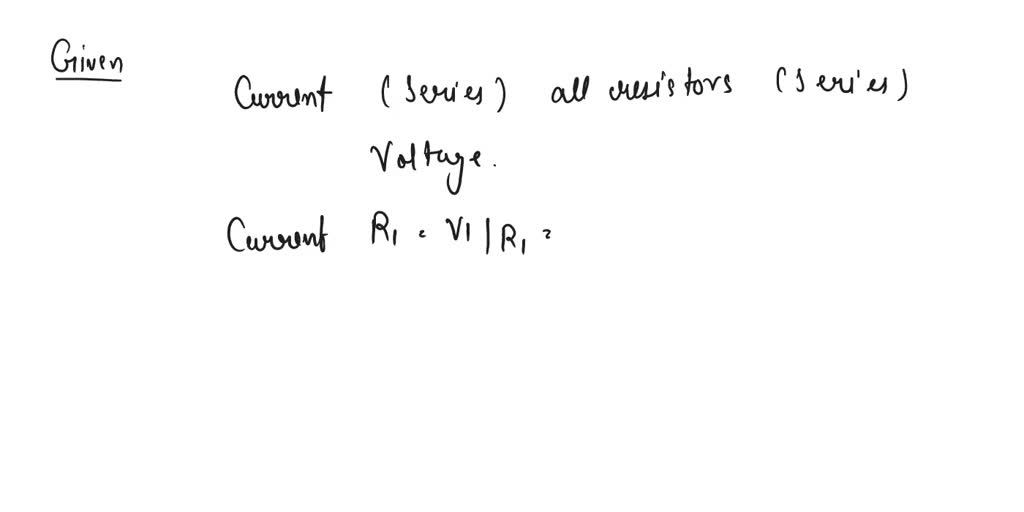 Given
Current (Series) all resistors (Series)
Voltage.
Current R1 = V1 | R1 =